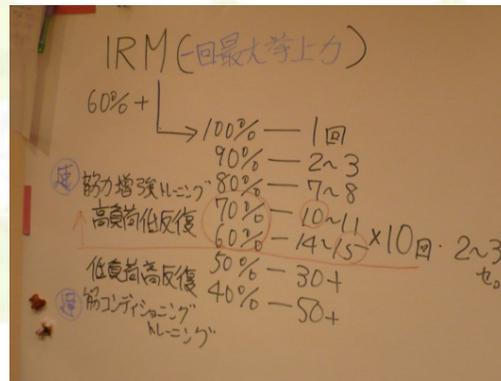 1RM(一回最大挙上力)
60%+
100% — 1回
90% — 2~3
筋力増強トレーニング 80% — 7~8
高負荷低反復 70% — 10~11
60% — 14~15 ×10回・2~3
低負荷高反復 50% — 30+
40% — 50+
筋コンディショニング
トレーニング